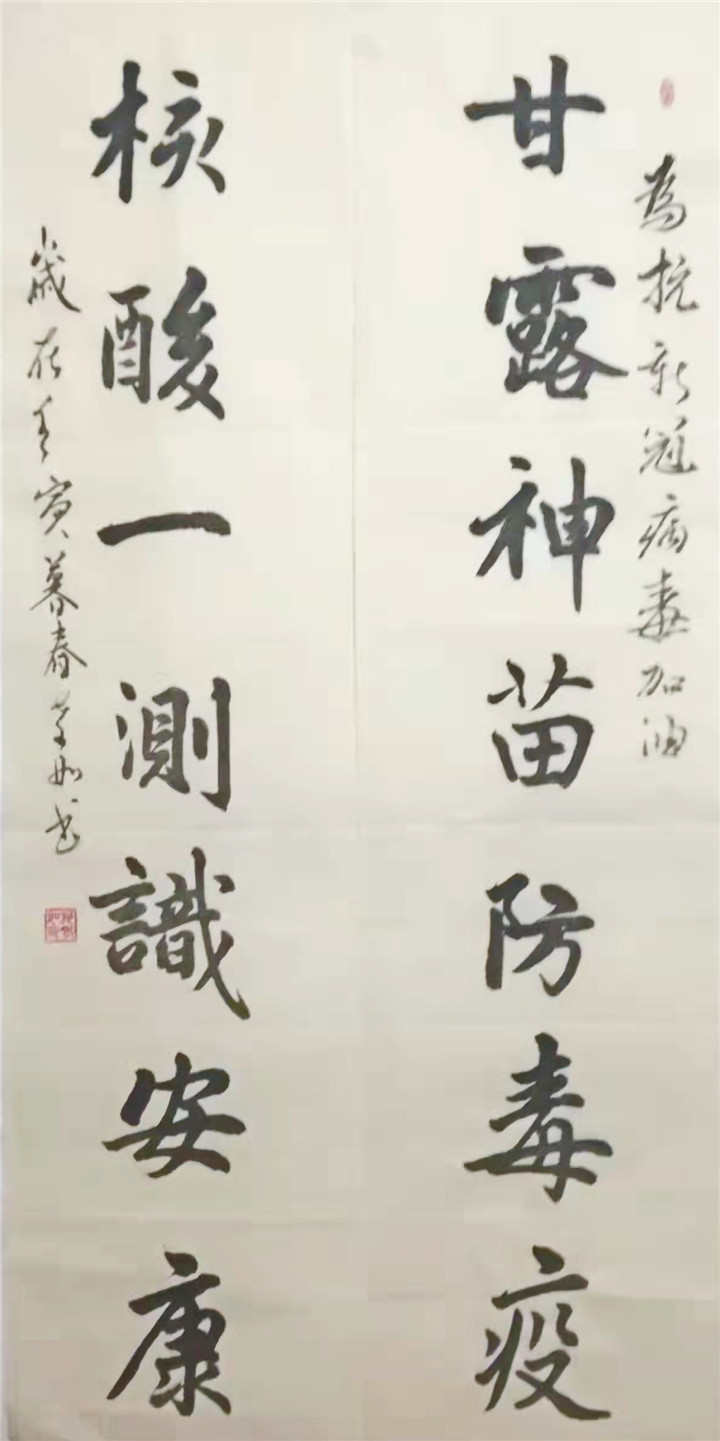 為抗新冠病毒加油
甘露神苗防毒疫
核酸一測識安康
歲在壬寅暮春 如书